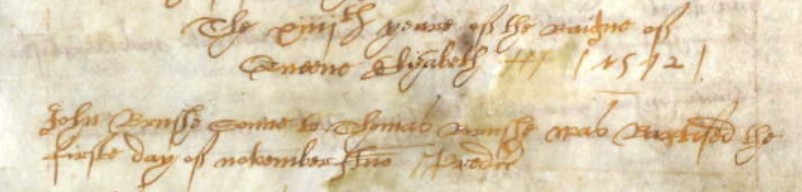 The xiiijth yeare of the Raigne of
Queene Elizabeth 1572
John Brusse Sonne to Thomas Brusse was Baptised the
firste day of november Ano Predict